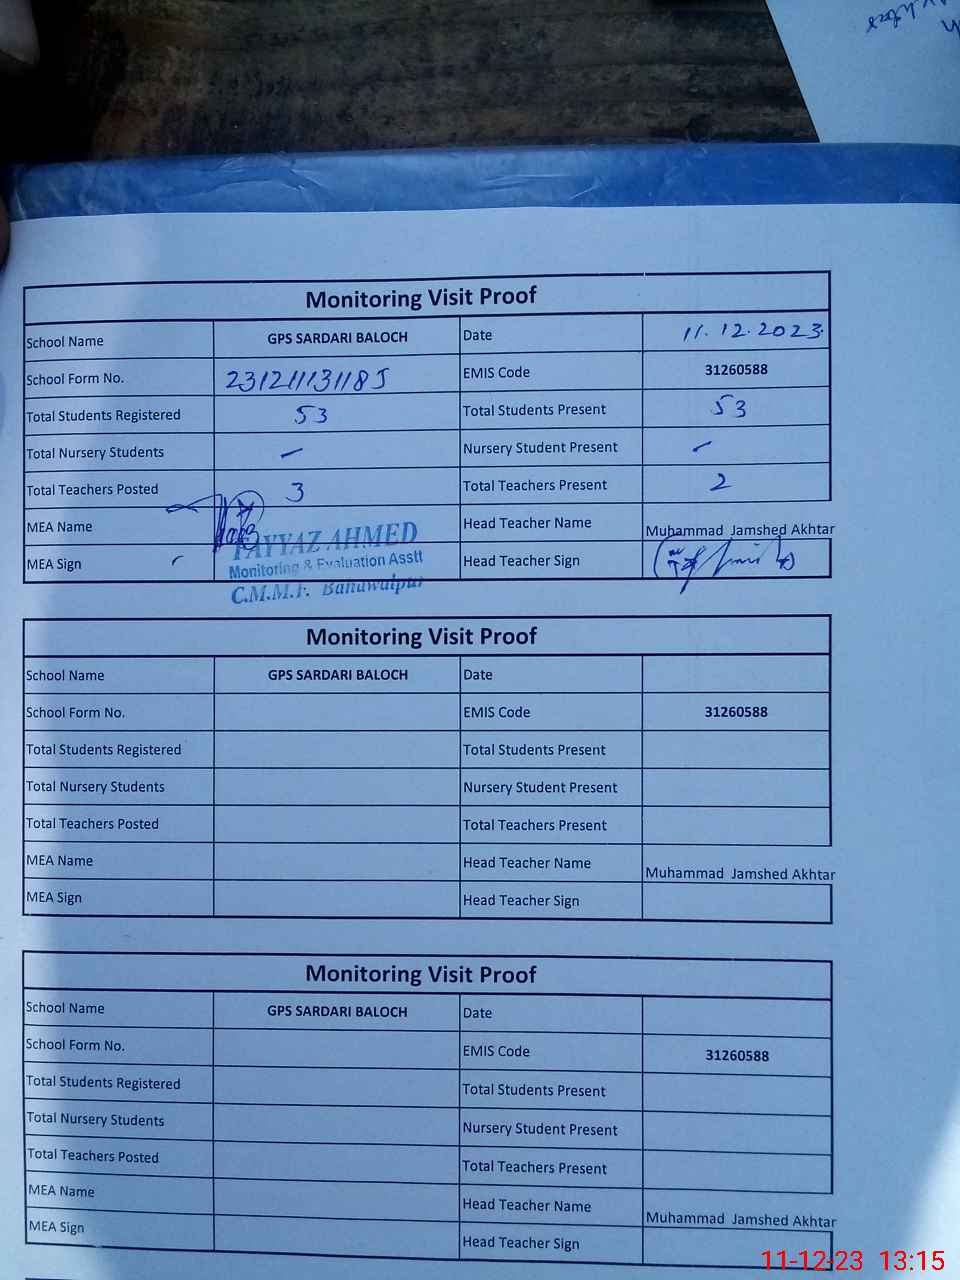 Monitoring Visit Proof
School Name GPS SARDARI BALOCH Date 11.12.2023.
School Form No. EMIS Code 31260588
Total Students Registered 53 Total Students Present 53
Total Nursery Students – Nursery Student Present –
Total Teachers Posted 3 Total Teachers Present 2
MEA Name Head Teacher Name Muhammad Jamshed Akhtar
FAYYAZ AHMED
MEA Sign Monitoring & Evaluation Asstt Head Teacher Sign
C.M.M.F. Bahawalpur
Monitoring Visit Proof
School Name GPS SARDARI BALOCH Date
School Form No. EMIS Code 31260588
Total Students Registered Total Students Present
Total Nursery Students Nursery Student Present
Total Teachers Posted Total Teachers Present
MEA Name Head Teacher Name Muhammad Jamshed Akhtar
MEA Sign Head Teacher Sign
Monitoring Visit Proof
School Name GPS SARDARI BALOCH Date
School Form No. EMIS Code 31260588
Total Students Registered Total Students Present
Total Nursery Students Nursery Student Present
Total Teachers Posted Total Teachers Present
MEA Name Head Teacher Name Muhammad Jamshed Akhtar
MEA Sign Head Teacher Sign
11-12-23 13:15